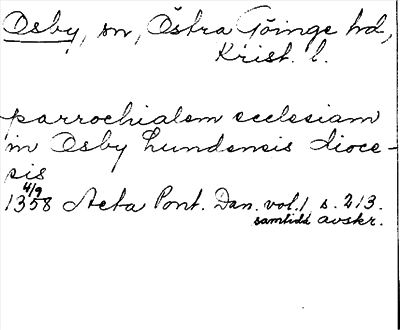 Osby, sn, Östra Göinge hd,
Krist. l.
parrochialem ecclesiam
in Osby Lundensis dioce-
sis
4/9
1358 Acta Pont. Dan. vol. 1, s. 213.
samtida avskr.